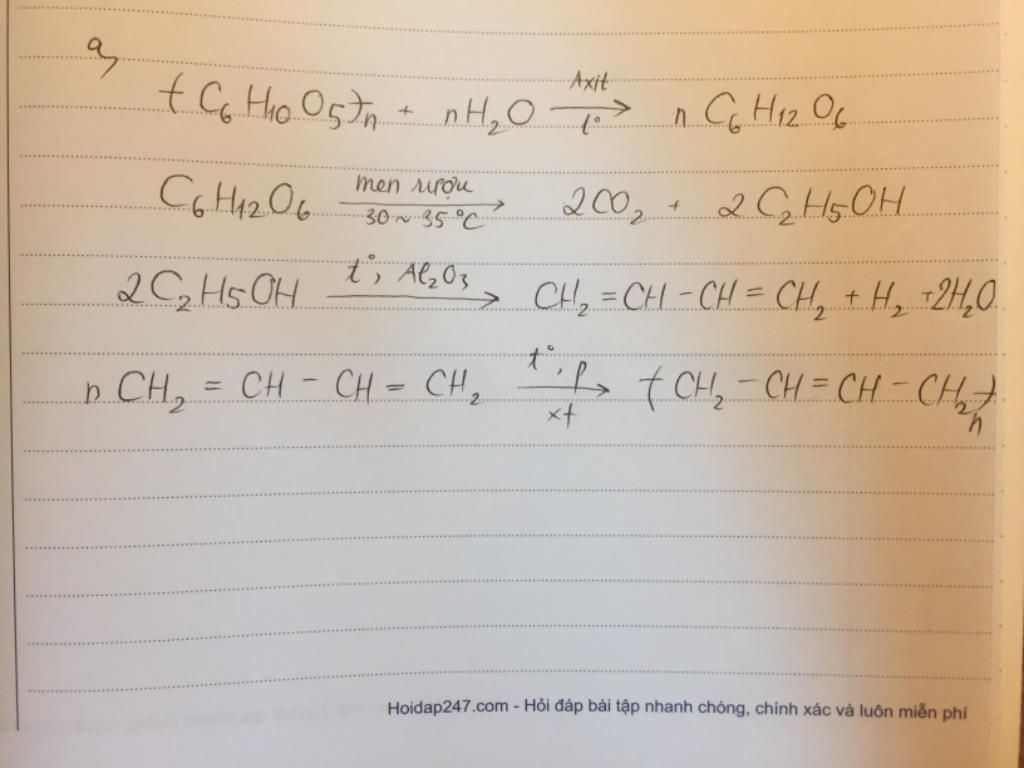 a,
(C₆H₁₀O₅)ₙ + nH₂O —Axit/t°→ n C₆H₁₂O₆
C₆H₁₂O₆ —men rượu/30 ~ 35°C→ 2CO₂ + 2C₂H₅OH
2C₂H₅OH —t°, Al₂O₃→ CH₂ = CH – CH = CH₂ + H₂ + 2H₂O
n CH₂ = CH – CH = CH₂ —t°, p/xt→ (CH₂ – CH = CH – CH₂)ₙ
Hoidap247.com - Hỏi đáp bài tập nhanh chóng, chính xác và luôn miễn phí